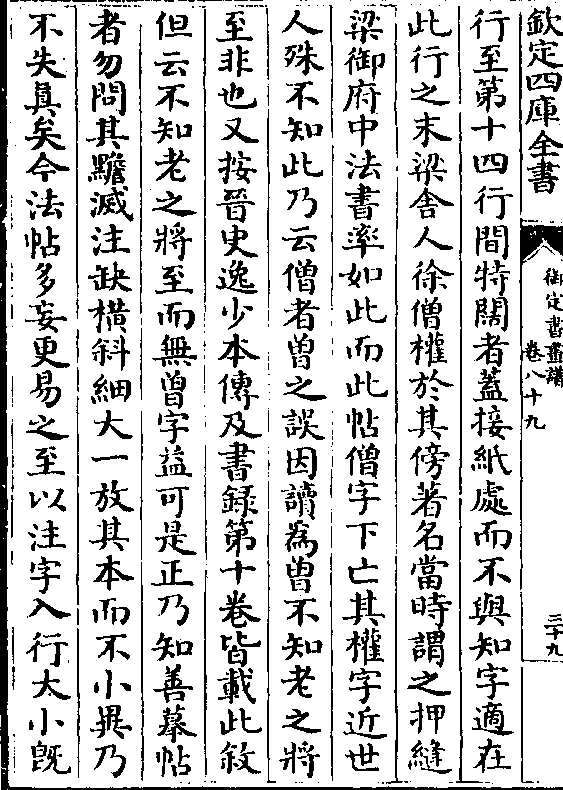 欽定四庫全書
御定書畫譜
卷八十九
三十九
行至第十四行間特闊者蓋接紙處而不與知字適在
此行之末梁舍人徐僧權於其傍著名當時謂之押縫
梁御府中法書率如此而此帖僧字下亡其權字近世
人殊不知此乃云僧者曾之誤因讀為曾不知老之將
至非也又按晉史逸少本傳及書録第十卷皆載此敘
但云不知老之將至而無曾字益可是正乃知善摹帖
者勿問其黵滅注缺橫斜細大一放其本而不小異乃
不失真矣今法帖多妄更易之至以注字入行大小既